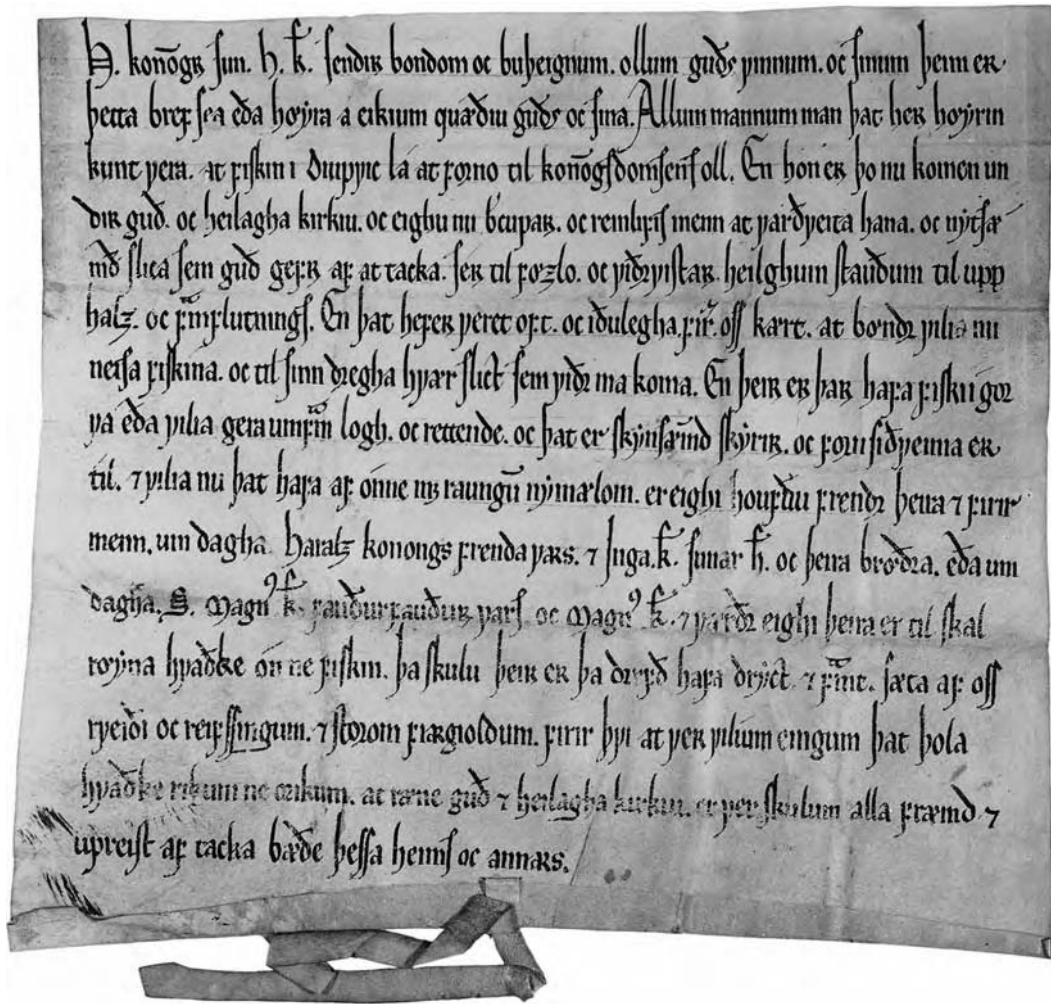 H. konōgꝛ ſun. H. k̄. ſendiꝛ bondom oc buþeignum. ollum guðſ ꝩinnum. oc ſinum þeim eꝛ
þetta breꝼ ſea eða høyra a eikium quæðiu guðſ oc ſina. Allum mannum man þat heꝛ høyrin
kunt ꝩera. at ꝼiſkin i Diupꝩic la at ꝼorno til konōgſdomſenſ oll. En hon eꝛ þo nu komen un
diꝛ guð. oc heilagha kirkiu. oc eighu nu b̄cupaꝛ. oc reinliꝼiſ menn at ꝩarðꝩeita hana. oc nytſæ
mð ſlica ſem guð geꝼꝛ aꝼ at tacka. ſeꝛ til ꝼozlo. oc ꝩiðꝛꝩiſtaꝛ. heilghum ſtauðum til upp
halꝫ. oc ꝼmꝼlutningſ. En þat heꝼeꝛ ꝩeret oꝼt. oc iðulegha. ꝼir. oſſ kært. at bøndꝛ ꝩilia nu
neiſa ꝼiſkina. oc til ſinn dregha hꝩærr ſlict ſem ꝩiðꝛ ma koma. En þeiꝛ eꝛ þaꝛ haꝼa ꝼiſku gor
ꝩa eða ꝩilia gera umꝼm logh. oc rettende. oc þat er ſkynſæmd ſkyriꝛ. oc ꝼorn ſiðꝩenia eꝛ
til. ⁊ ꝩilia nu þat haꝼa aꝼ ónne m; raungū nymælom. er eighi houꝼðu ꝼrendꝛ þeira ⁊ ꝼirir
menn. um dagha Haralꝫ konongs ꝼrenda ꝩars. ⁊ Inga. k̄. ſunar h̄. oc þeira brøðra. eða um
dagha. S. Magnꝰ k̄. ꝼauðurꝼauður ꝩarſ. oc Magnꝰ k̄. ⁊ ꝩarðꝛ eighi þeira er til ſkal
røyna hꝩaðke ón ne ꝼiſkin. þa ſkulu þeiꝛ eꝛ þa dirꝼð haꝼa dryct. ⁊ ꝼmt. ſæta aꝼ oſſ
rꝩeiði oc reiꝼſſingum. ⁊ ſtorom ꝼiærgioldum. ꝼirir þꝩi at ꝩeꝛ ꝩilium eingum þat þola
hꝩaðke rikum ne orikum. at ræne guð ⁊ heilagha kirkiu. er ꝩer ſkulum alla ꝼræmd ⁊
upreiſt aꝼ tacka bæðe þeſſa heimſ oc annaꝛs.